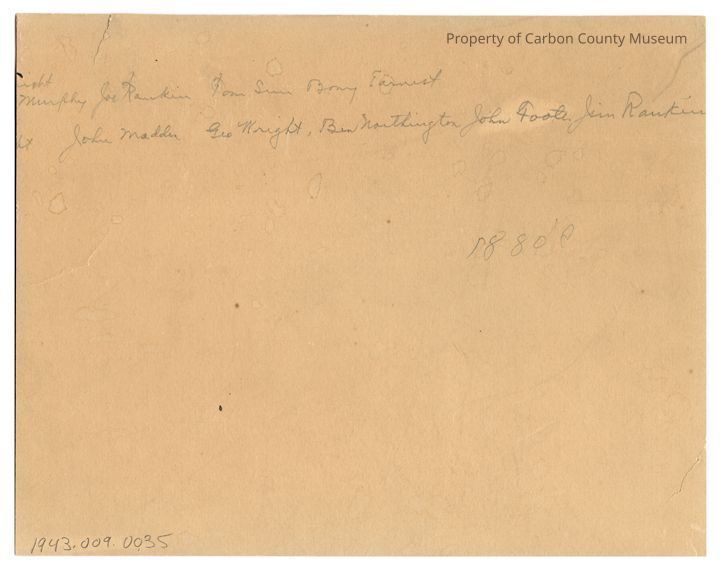 Property of Carbon County Museum
ight
Murphy Joe Rankin Tom Sun Bony Earnest
John Madden Geo Wright, Ben Northington John Foote Jim Rankin
1880's
1943.009.0035